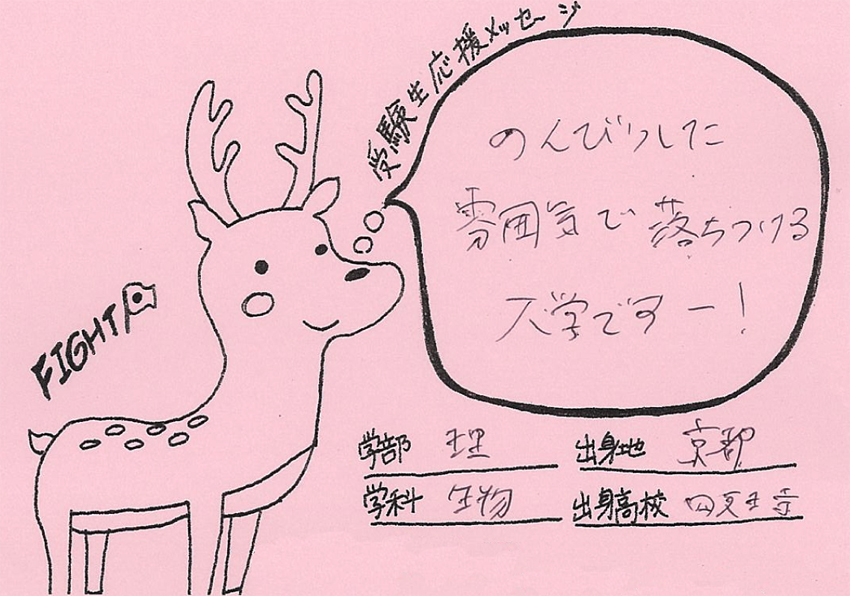 受験生応援メッセージ
のんびりした
雰囲気で落ちつける
大学ですー!
FIGHT
学部 理
出身地 京都
学科 生物
出身高校 四天王寺